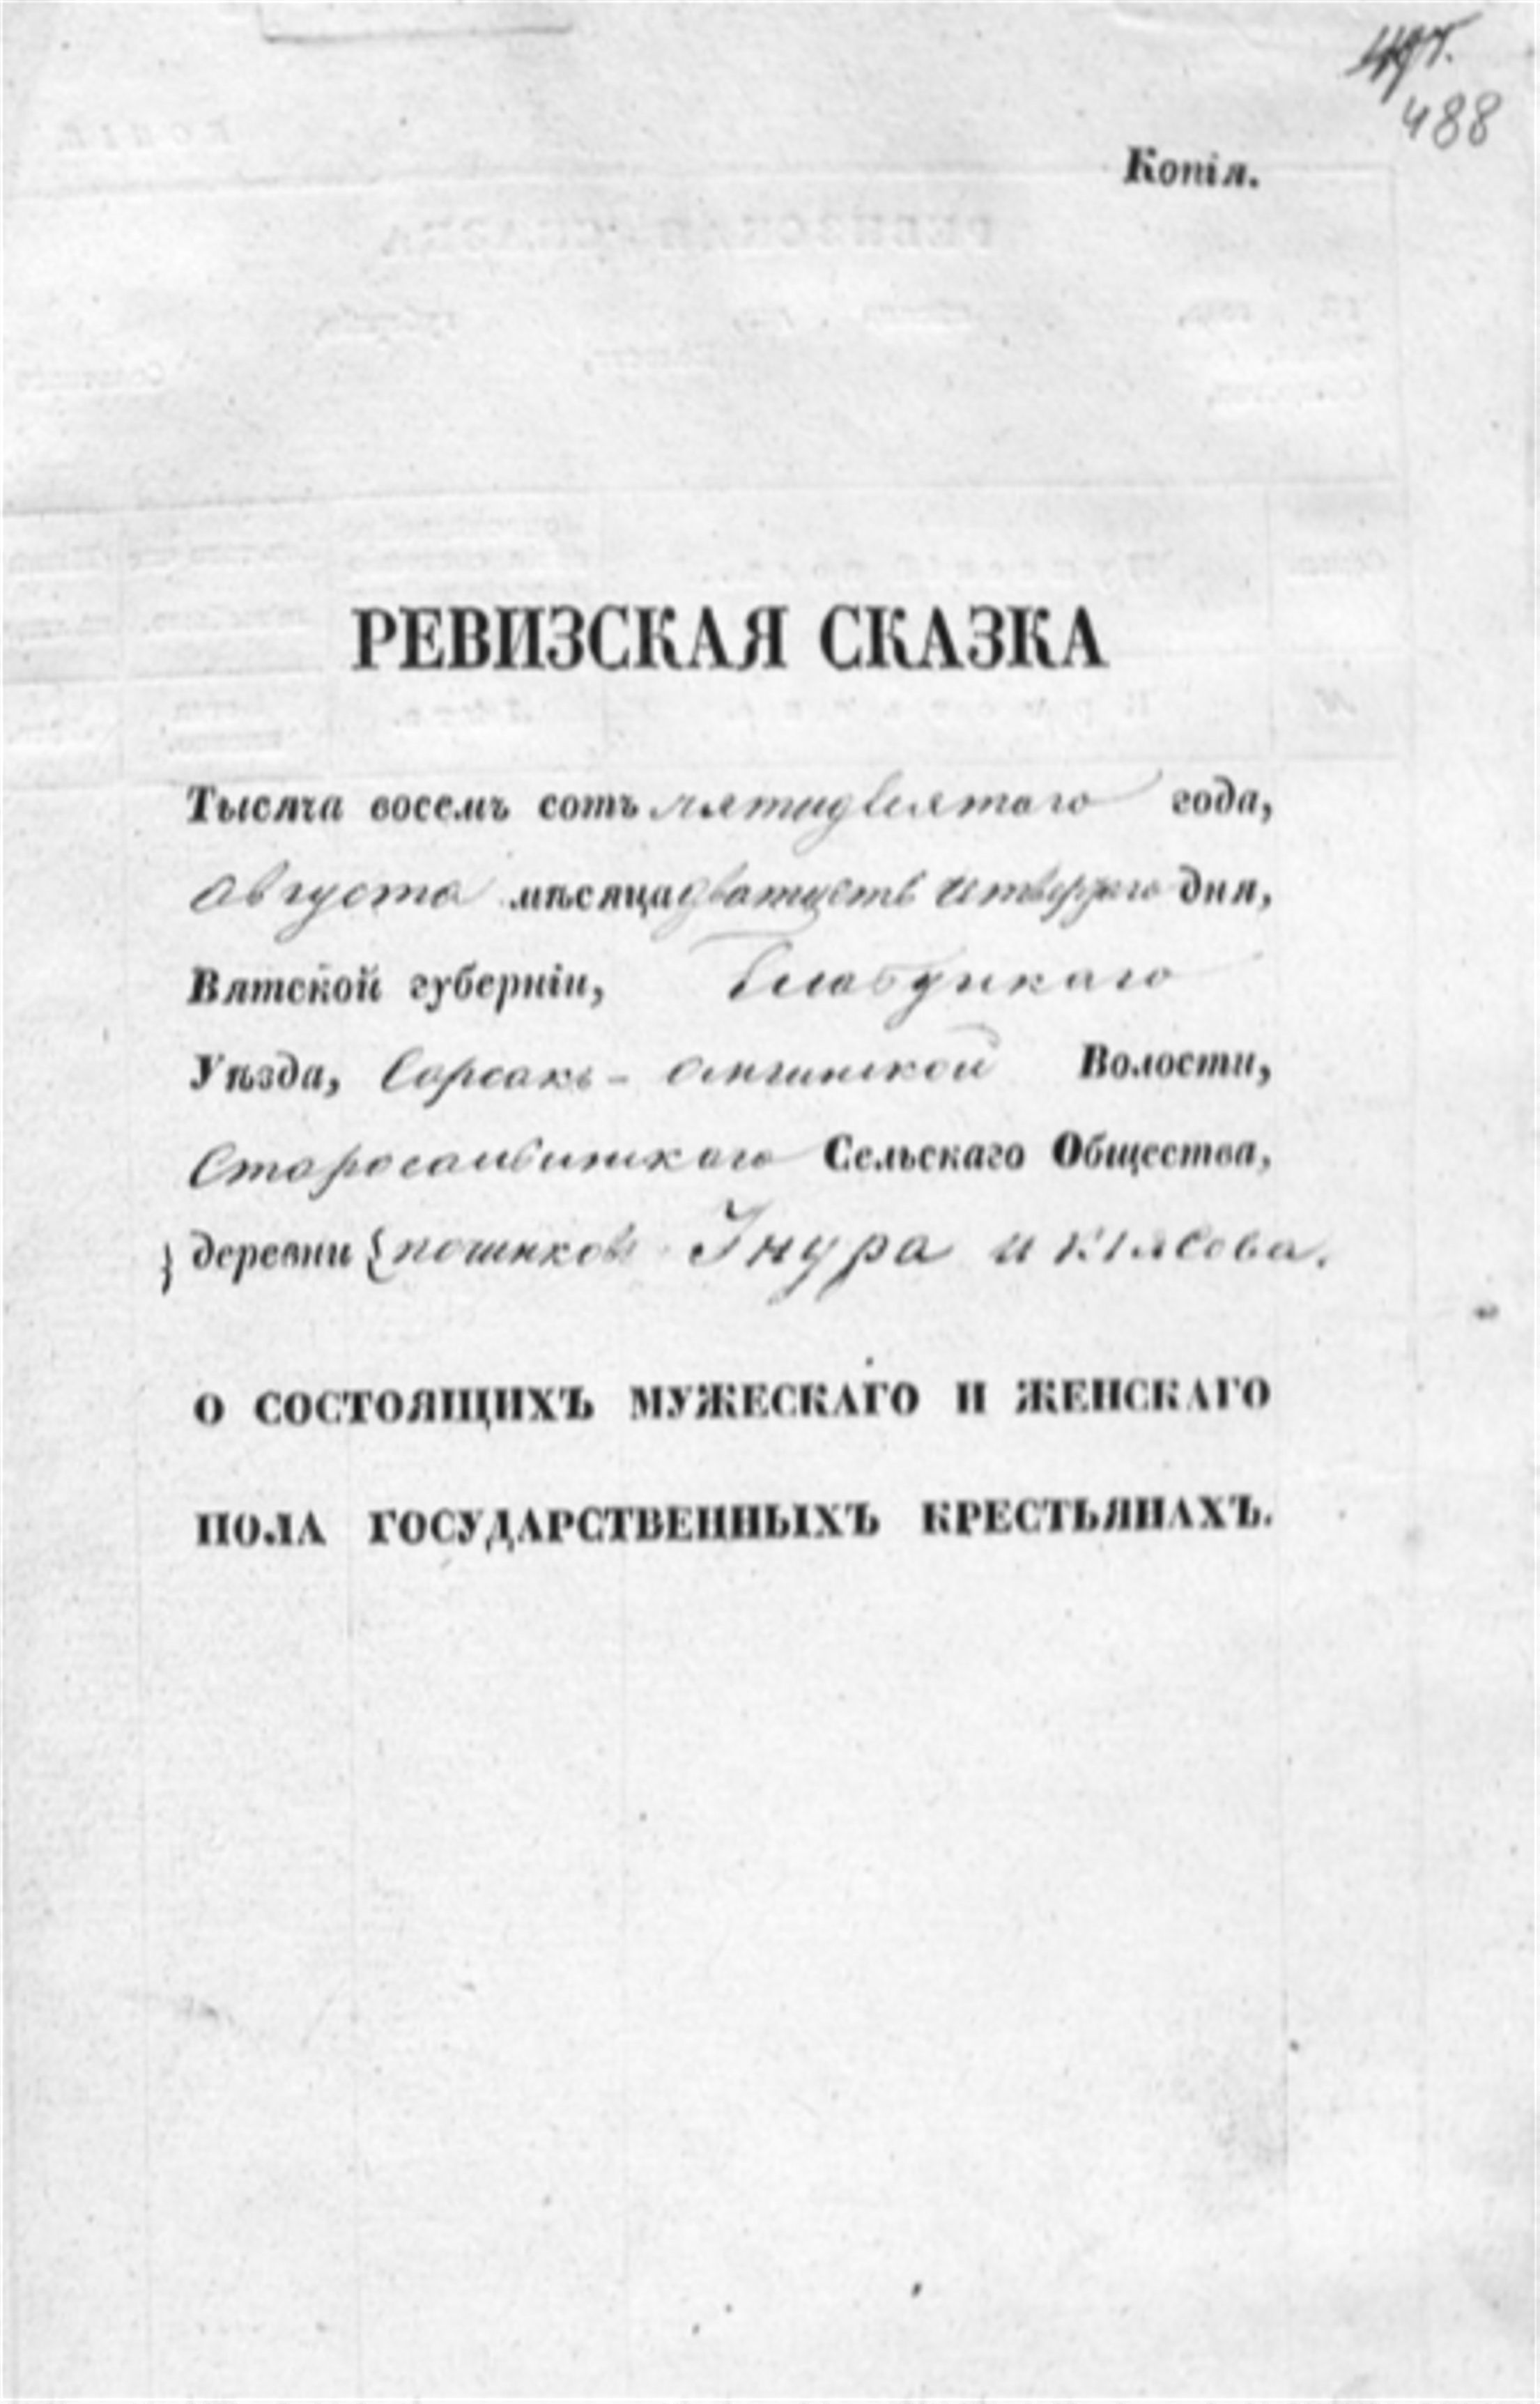 488
Копія.
РЕВИЗСКАЯ СКАЗКА
Тысяча восемь сотъ пятидесятого года,
Августа мѣсяца дватцеть четвертого дня,
Вятской губерніи, Елабужкаго
Уѣзда, Сарсакъ-Омгинской Волости,
Сельскаго Общества,
деревни починковъ Інура и
О СОСТОЯЩИХЪ МУЖЕСКАГО И ЖЕНСКАГО
ПОЛА ГОСУДАРСТВЕННЫХЪ КРЕСТЬЯНАХЪ.